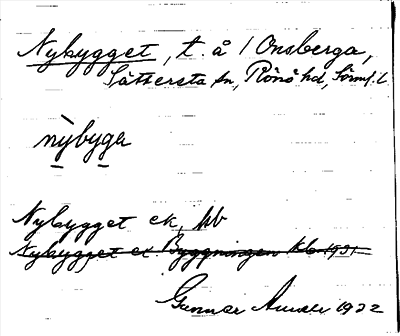 Nybygget, t. å / Onsberga,
Sättersta sn, Rönö hd, Sörml. l.
nỳbyga
Nybygget ek, kb
Nybygget el Byggningen kb 1931
Gunnar 1932